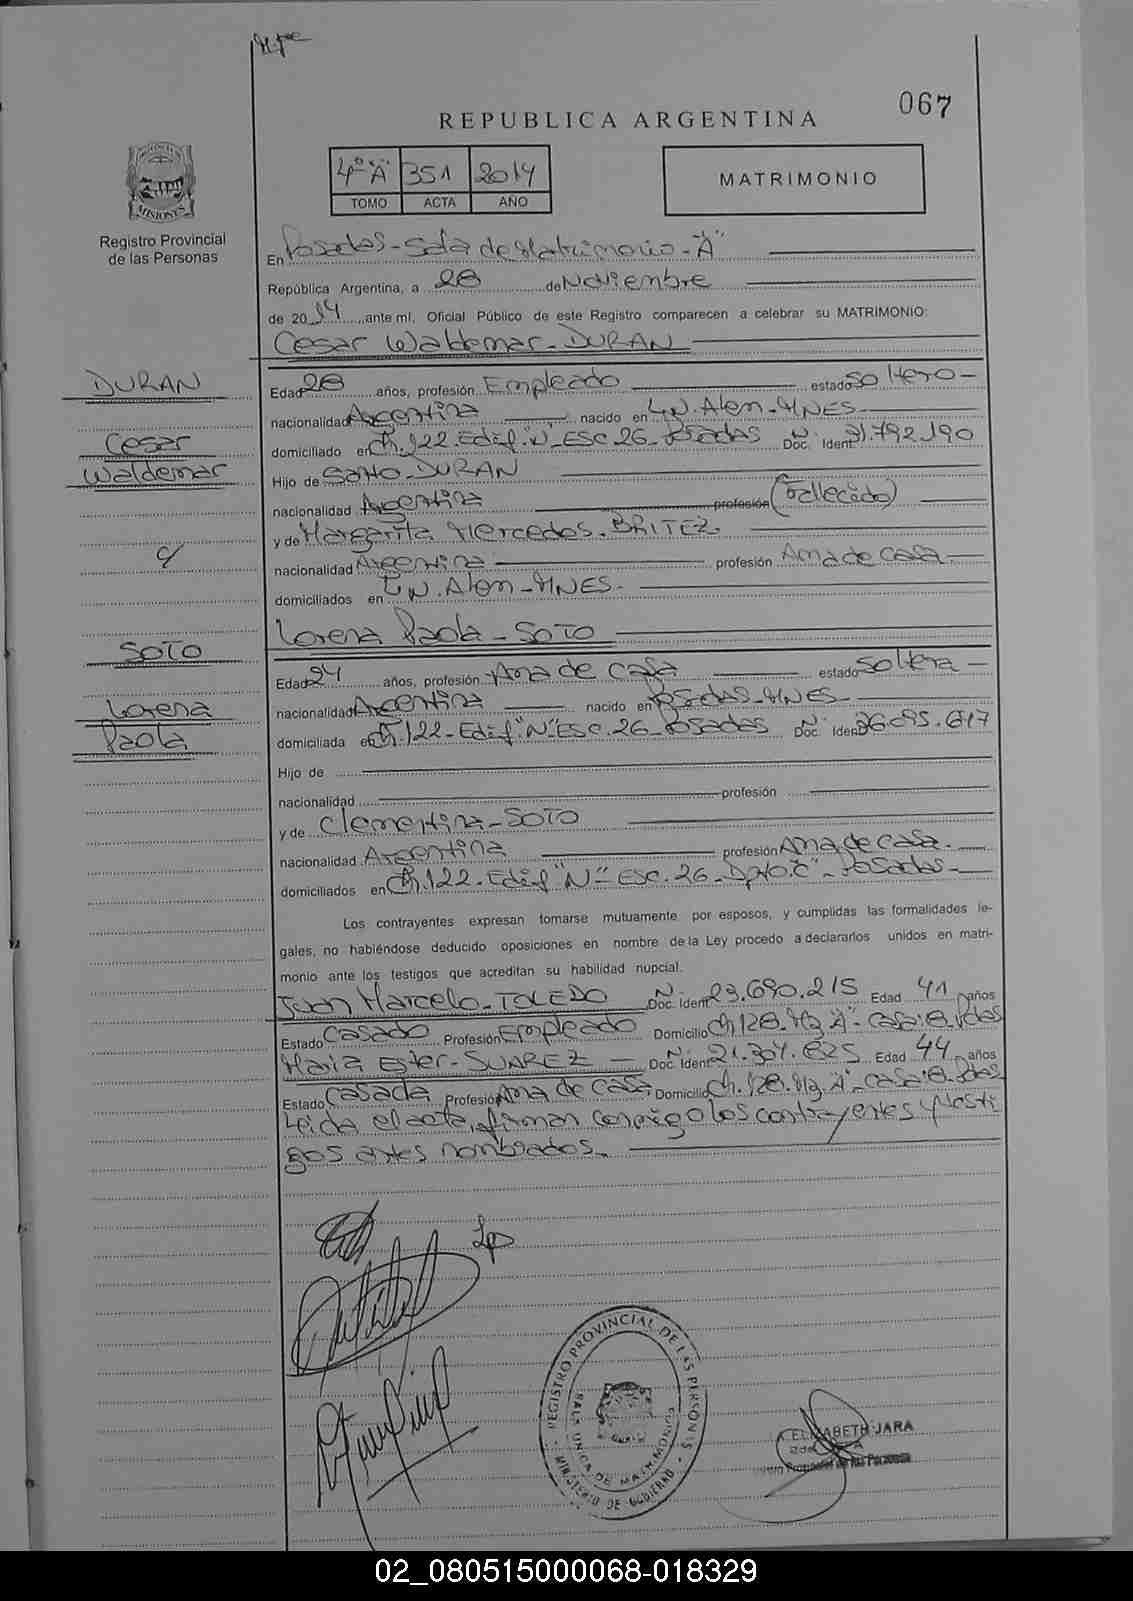 067
REPUBLICA ARGENTINA
4º "A" 351 2014
TOMO ACTA AÑO
MATRIMONIO
PROVINCIA
MISIONES
Registro Provincial
de las Personas
En Posadas - Sala de Matrimonio - "A"
República Argentina, a 28 de Noviembre
de 2014, ante mí, Oficial Público de este Registro comparecen a celebrar su MATRIMONIO:
Cesar Waldemar - DURAN
DURAN
Cesar
Waldemar
c/
SOTO
Lorena
Paola
Edad 28 años, profesión Empleado estado soltero -
nacionalidad Argentina nacido en L.N. Alem - MNES -
domiciliado en Ch. 122. Edif. "N" ESC. 26 - Posadas Doc. Ident. 31.792.190
Hijo de Santo - DURAN
nacionalidad Argentina profesión (Fallecido)
y de Margarita Mercedes - BRITEZ.
nacionalidad Argentina profesión Ama de casa -
domiciliados en L.N. Alem - MNES -
Lorena Paola - SOTO
Edad 24 años, profesión Ama de casa estado Soltera -
nacionalidad Argentina nacido en Posadas - MNES
domiciliada en Ch. 122 - Edif. "N" Esc. 26 - Posadas Doc. Ident. 36.095.617
Hijo de
nacionalidad profesión
y de Clementina - SOTO
nacionalidad Argentina profesión Ama de casa -
domiciliados en Ch. 122 - Edif "N" - Esc. 26 - Dpto. "C" - Posadas -
Los contrayentes expresan tomarse mutuamente por esposos, y cumplidas las formalidades le-
gales, no habiéndose deducido oposiciones en nombre de la Ley procedo a declararlos unidos en matri-
monio ante los testigos que acreditan su habilidad nupcial.
Juan Marcelo - TOLEDO Doc. Ident. 23.690.215 Edad 41 años
Estado Casado Profesión Empleado Domicilio Ch. 128. Mz "A" - casa: 8. Pdas
Maria Ester - SUAREZ - Doc. Ident. 21.304.625 Edad 44 años
Estado Casada Profesión Ama de casa Domicilio Ch. 128. Mz "A" - casa: 8. Pdas
Leida el acta, firman conmigo los contrayentes y testi
gos antes nombrados.
REGISTRO PROVINCIAL DE LAS PERSONAS
SALA UNICA DE MATRIMONIOS
MINISTERIO DE GOBIERNO
ELIZABETH JARA
Provincial de las Personas
02_080515000068-018329